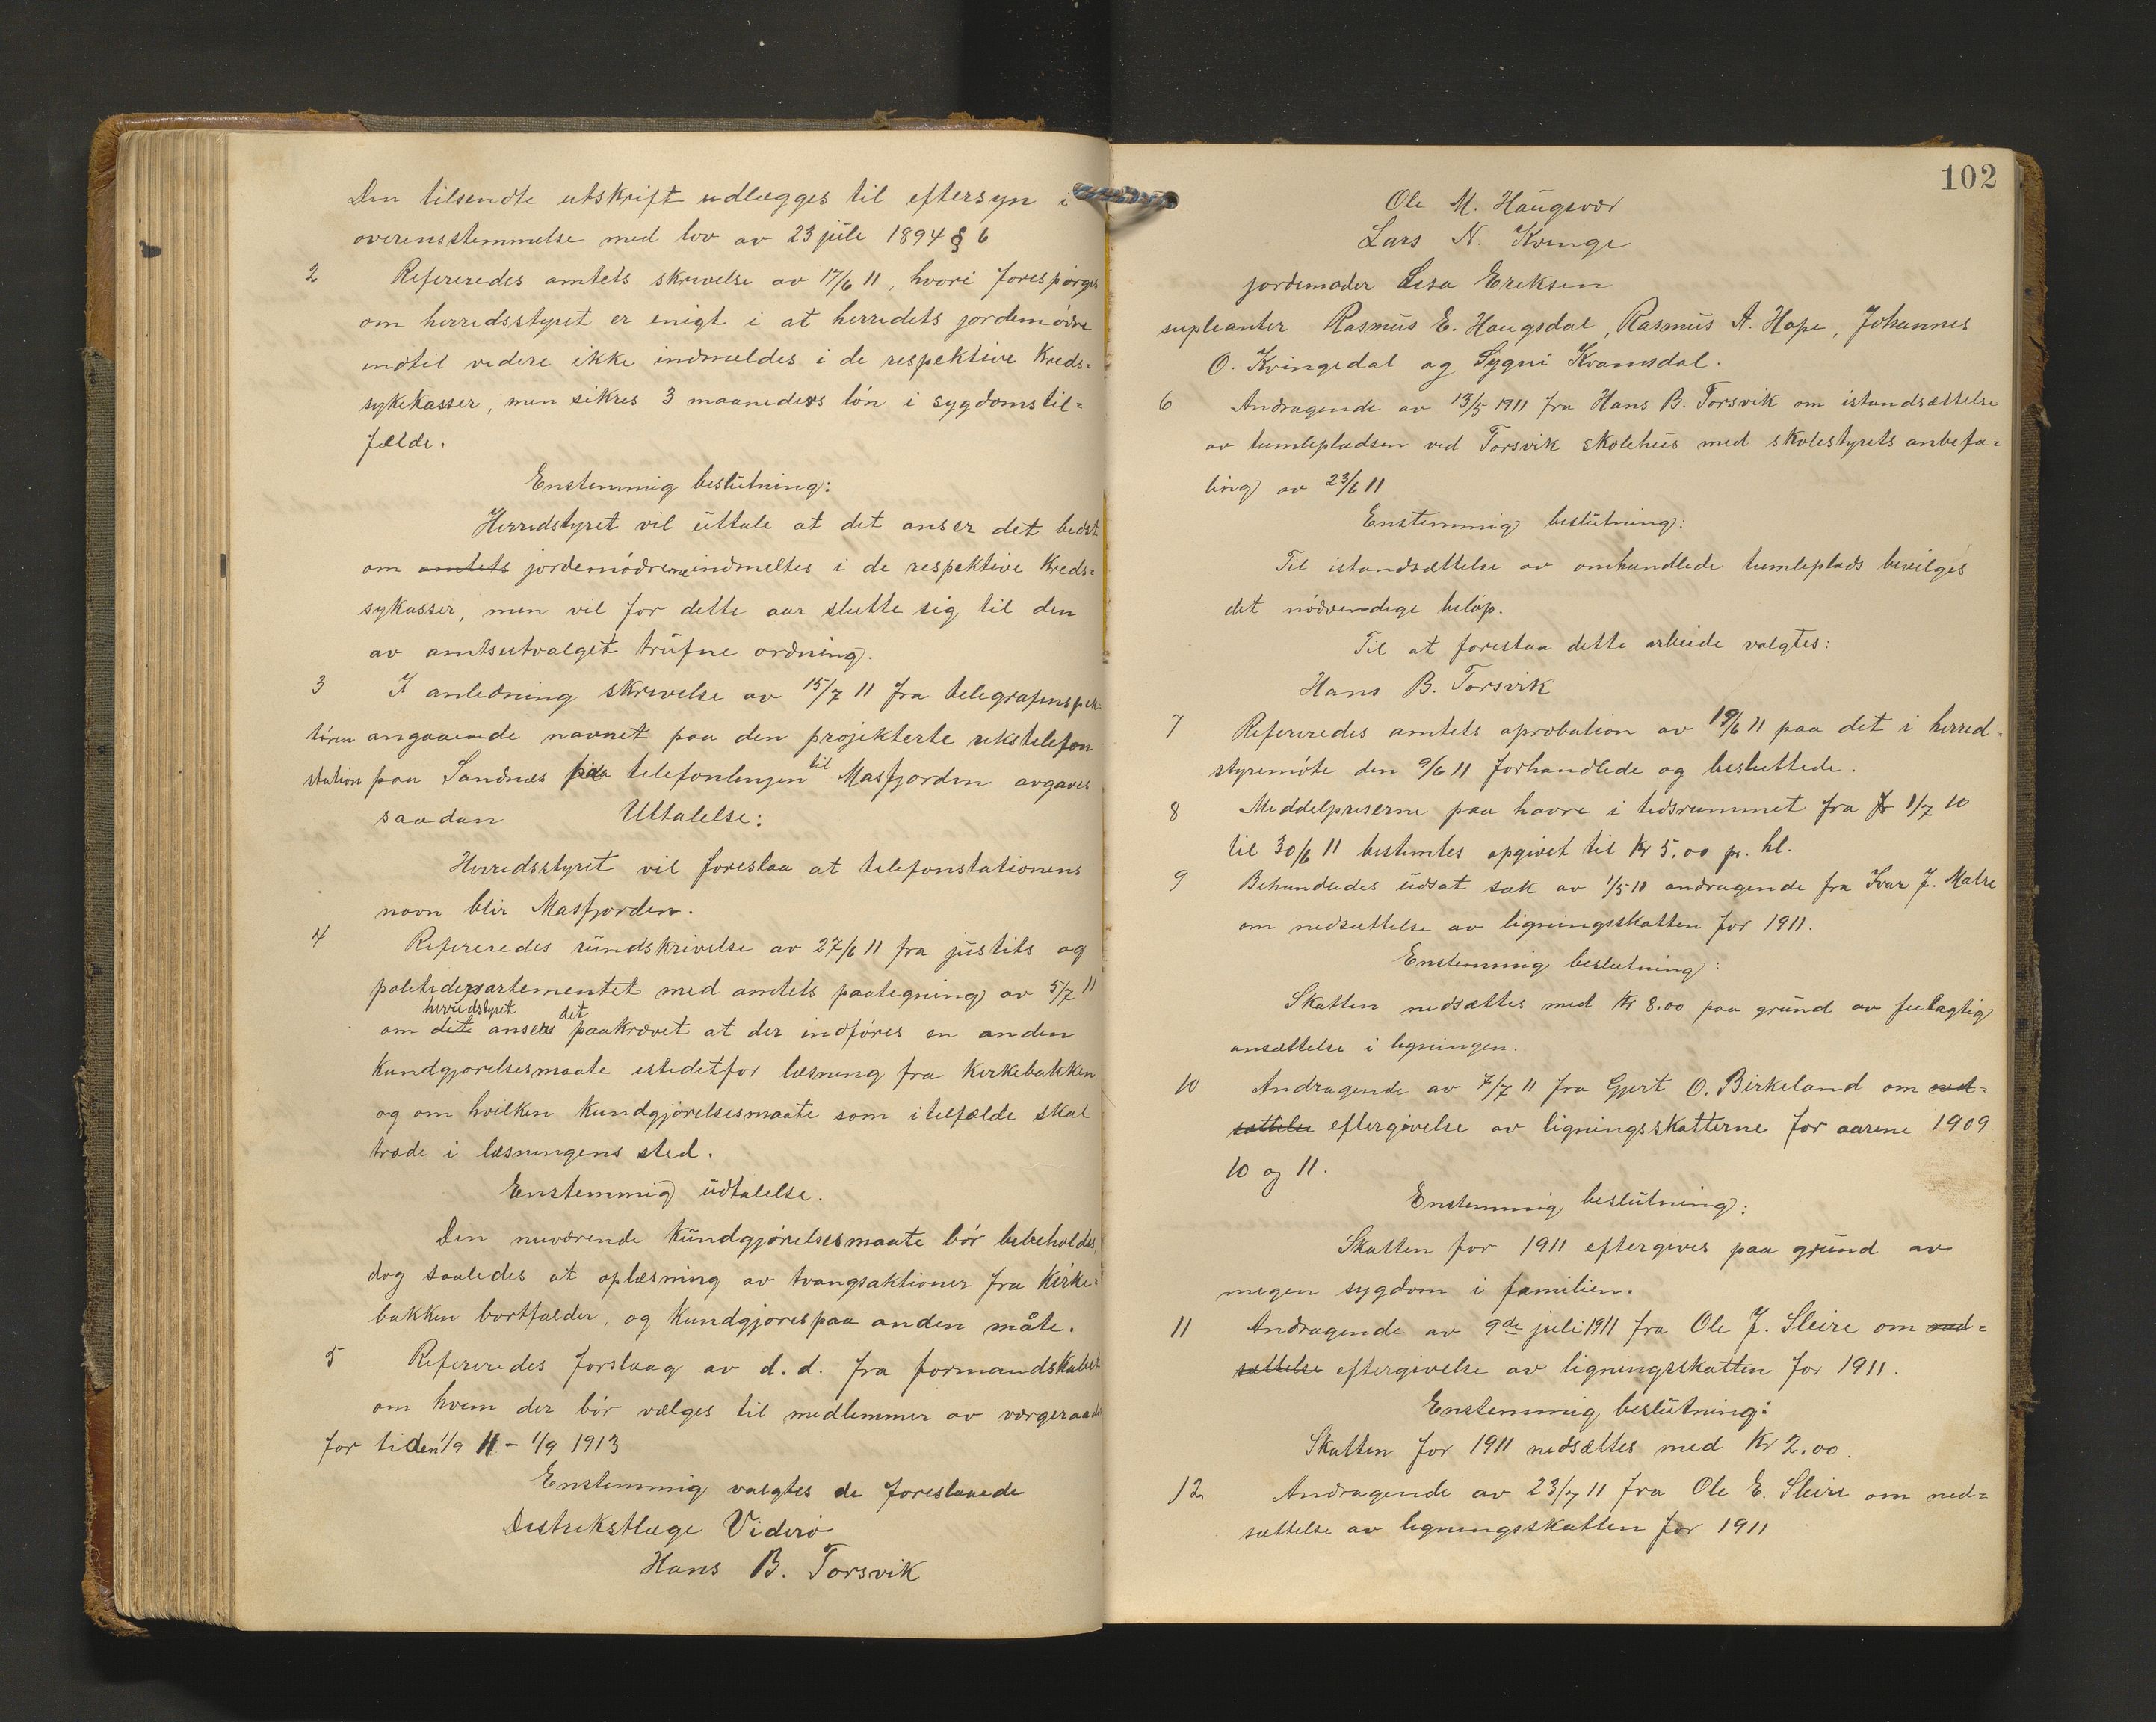 Den tilsendte utskrift udlægges til eftersyn i
overensstemmelse med lov av 23 juli 1894 § 6
2 Refereredes amtets skrivelse av 17/6 11, hvori forespørges
om herredsstyret er enigt i at herredets jordemødre
indtil videre ikke indmeldes i de respektive Kreds=
sykekasser, men sikres 3 maaneders løn i sygdomstil=
fælde.
Enstemmig beslutning:
Herredstyret vil uttale at det anser det bedst
om amtets jordemødrene indmeltes i de respektive Kreds=
sykasser, men vil for dette aar slutte sig til den
av amtsutvalget trufne ordning.
3 I anledning skrivelse av 15/7 11 fra telegrafinspek-
tøren angaaende navnet paa den projekterte rikstelefon
station paa Sandnæs paa telefonlinjen til Masfjorden avgaves
saadan Uttalelse:
Herredsstyret vil foreslaa at telefonstationens
navn blir Masfjorden.
4 Refereredes rundskrivelse av 27/6 11 fra justits og
politidepartementet med amtets paategning av 5/7 11
om det herredstyret anser det paakrævet at der indføres en anden
Kundgjørelsesmaate istedetfor læsning fra Kirkebakken
og om hvilken Kundgjørelsesmaate som i tilfælde skal
træde i læsningens sted.
Enstemmig udtalelse.
Den nuværende Kundgjørelsesmaate bør bibeholdes,
dog saaledes at oplæsning av tvangsaktioner fra Kirke=
bakken bortfalder, og Kundgjøres paa anden måte.
5 Refereredes forslaag av d. d. fra formandskabet
om hvem der bør vælges til medlemmer av værgeraadet
for tiden 1/9 11 - 1/9 1913
Enstemmig valgtes de foreslaaede
Distrikstlæge Viderø
Hans B. Torsvik
102
Ole M. Haugsvær
Lars N. Kvinge
jordemoder Lisa Eriksen
supleanter Rasmus E. Haugsdal, Rasmus A. Hope, Johannes
O. Kvingedal og Sygni Kvamsdal.
6 Andragende av 13/5 1911 fra Hans B. Torsvik om istandsættelse
av tumlepladsen ved Torsvik skolehus med skolestyrets anbefa=
ling av 23/6 11
Enstemmig beslutning:
Til istandsættelse av omhandlede tumleplads bevilges
det nødvendige beløp.
Til at forestaa dette arbeide valgtes:
Hans B. Torsvik
7 Refereredes amtets aprobation av 19/6 11 paa det i herred=
styremøte den 9/6 11 forhandlede og besluttede.
8 Middelpriserne paa havre i tidsrummet fra fr 1/7 10
til 30/6 11 bestemtes opgivet til Kr 5.00 pr. hl.
9 Behandledes udsat sak av 1/5 11 andragende fra Ivar J. Matre
om nedsættelse av ligningsskatten for 1911.
Enstemmig beslutning:
Skatten nedsættes med Kr 8.00 paa grund av feilagtig
ansættelse i ligningen.
10 Andragende av 7/7 11 fra Gjert O. Birkeland om ned=
sættelse eftergivelse av ligningsskatterne for aarene 1909
10 og 11.
Enstemmig beslutning:
Skatten for 1911 eftergives paa grund av
megen sygdom i familien.
11 Andragende av 9de juli 1911 fra Ole J. Sleire om ned=
sættelse eftergivelse av ligningsskatten for 1911.
Enstemmig beslutning:
Skatten for 1911 nedsættes med Kr 2.00.
12 Andragende av 23/7 11 fra Ole E. Sleire om ned=
sættelse av ligningsskatten for 1911